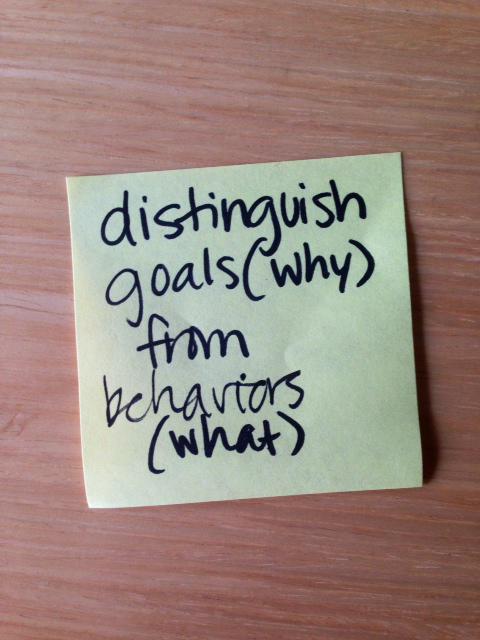 distinguish
goals (why)
from
behaviors
(what)